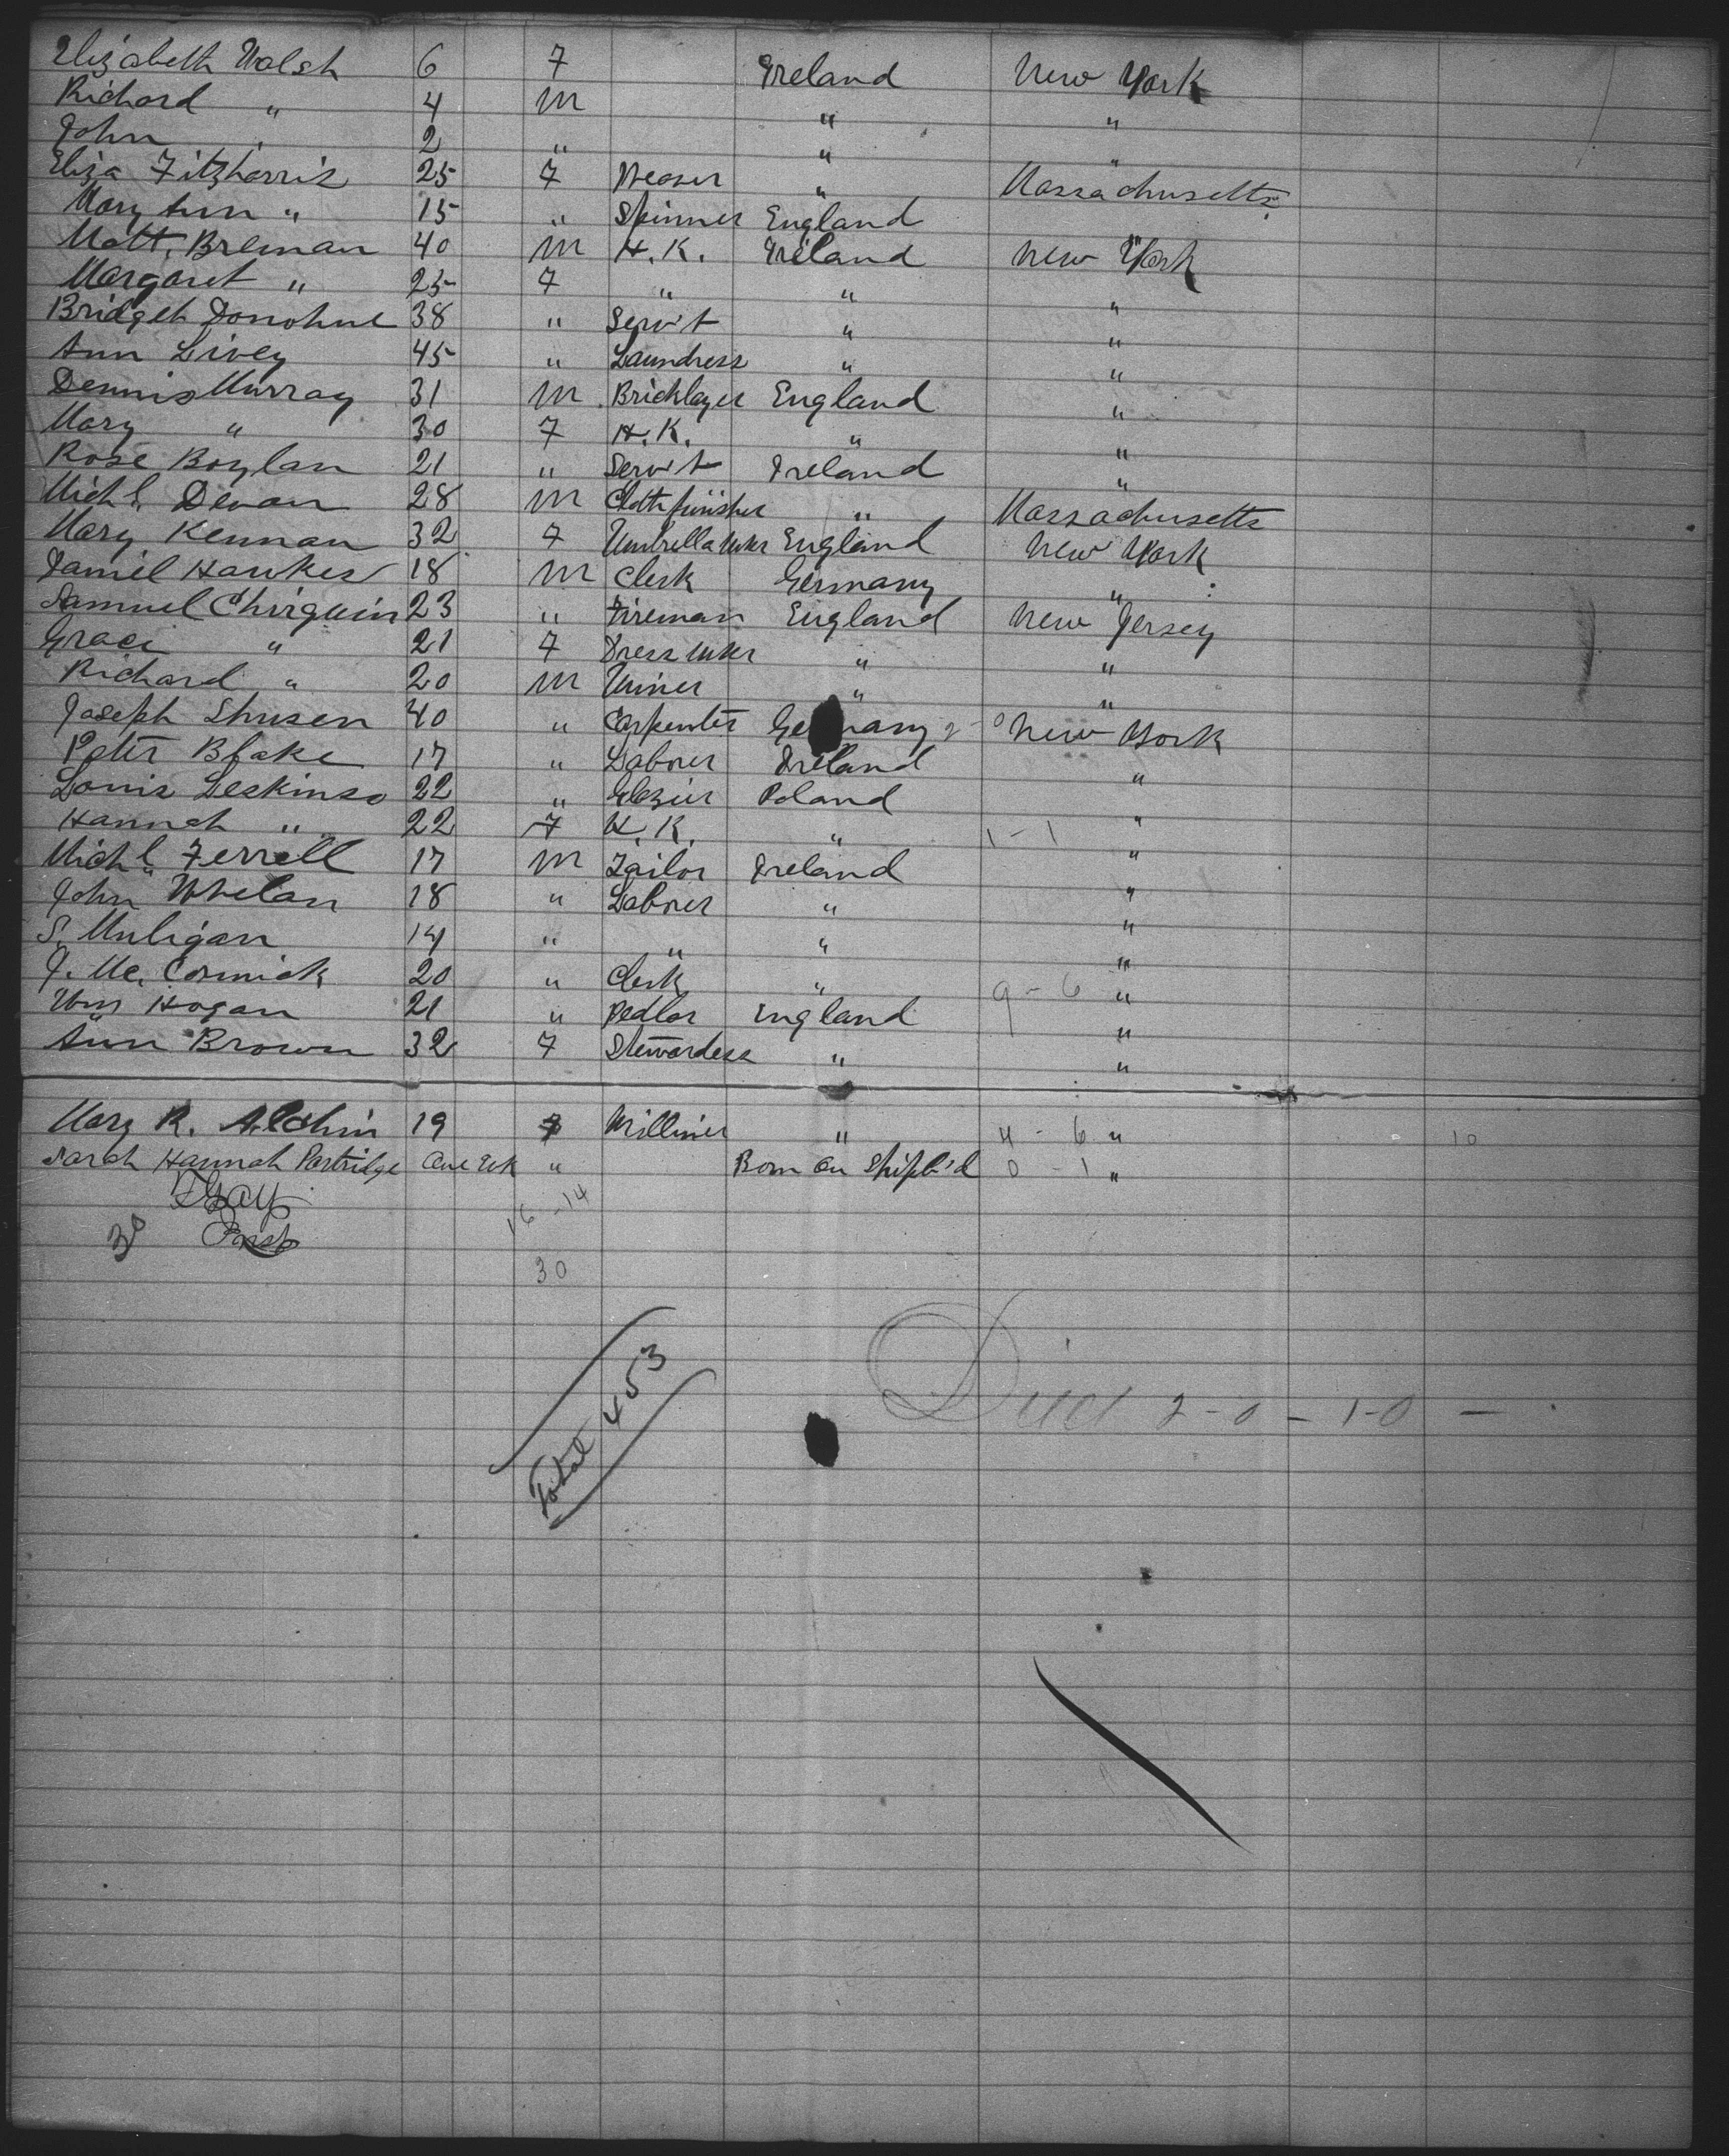 Elizabeth Walsh 6 F Ireland New York
Richard " 4 m " "
John " 2 " " "
Eliza Fitzharris 25 F Weaver " Massachusetts
Mary Ann " 15 " Spinner England "
Matt. Brennan 40 m H.K. Ireland New York
Margaret " 25 F " " "
Bridget Donohue 38 " Serv't " "
Ann Livey 45 " Laundress " "
Dennis Murray 31 m Bricklayer England "
Mary " 30 F H.K. " "
Rose Boylan 21 " Serv't Ireland "
Mich'l Devan 28 m Cloth finisher " Massachusetts
Mary Kennan 32 F Umbrella mkr England New York
Daniel Hawkes 18 m Clerk Germany "
Samuel Chirguin 23 " Fireman England New Jersey
Grace " 21 F Dress mkr " "
Richard " 20 m Miner " "
Joseph Shusen 40 " Carpenter Germany 2 - 0 New York
Peter Blake 17 " Laborer Ireland "
Louis Leskinso 22 " Glazier Poland "
Hannah " 22 F H.K. " 1 - 1 "
Mich'l Ferrell 17 m Tailor Ireland "
John Whelan 18 " Laborer " "
S. Muligan 14 " " " "
J. Mc.Cormick 20 " Clerk " 9 - 6 "
Wm Hogan 21 " Pedlar England "
Ann Brown 32 F Stewardess " "
Mary R. Alchin 19 F Milliner " 4 - 6 " 10
Sarah Hannah Partridge One Wk " Born on Shipb'd 0 - 1 "
16 - 14
30 Insp
30
Total 453
Died 2 - 0 - 1 - 0 -